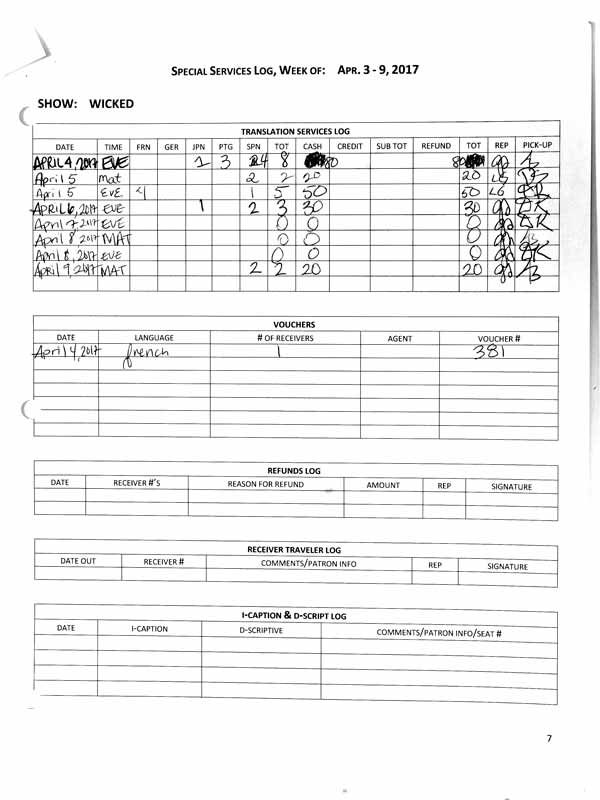 SPECIAL SERVICES LOG, WEEK OF: APR. 3 - 9, 2017
SHOW: WICKED
TRANSLATION SERVICES LOG
DATE TIME FRN GER JPN PTG SPN TOT CASH CREDIT SUB TOT REFUND TOT REP PICK-UP
APRIL 4, 2017 EVE 1 3 4 8 80 80
April 5 Mat 2 2 20 20 LG
April 5 EVE 4 1 5 50 50 LG
APRIL 6, 2017 EVE 1 2 3 30 30 DK
April 7, 2017 EVE 0 0 0 DK
April 8 2017 MAT 0 0 0
April 8, 2017 EVE 0 0 0 DK
April 9, 2017 MAT 2 2 20 20
VOUCHERS
DATE LANGUAGE # OF RECEIVERS AGENT VOUCHER #
April 4, 2017 french 1 381
REFUNDS LOG
DATE RECEIVER #'S REASON FOR REFUND AMOUNT REP SIGNATURE
RECEIVER TRAVELER LOG
DATE OUT RECEIVER # COMMENTS/PATRON INFO REP SIGNATURE
I-CAPTION & D-SCRIPT LOG
DATE I-CAPTION D-SCRIPTIVE COMMENTS/PATRON INFO/SEAT #
7